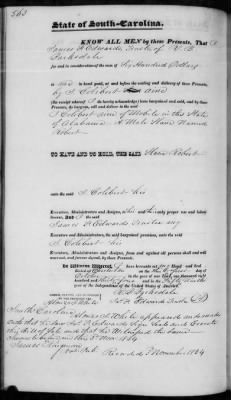 563
State of South-Carolina.
KNOW ALL MEN by these Presents, That I
James F. Edwards, Trustee of R. B.
Screven
for and in consideration of the sum of Six Hundred Dollars
to me in hand paid, at and before the sealing and delivery of these Presents,
by J. Colibert ainé
(the receipt whereof I do hereby acknowledge) have bargained and sold, and by these
Presents, do bargain, sell and deliver to the said
J. Colibert ainé of Mobile in the State
of Alabama. A Male Slave Named
Robert
TO HAVE AND TO HOLD, THE SAID Slave Robert
unto the said J. Colibert his
Executors, Administrators and Assigns, to his and their only proper use and behoof
forever. And I the said
James F. Edwards, Trustee my
Executors and Administrators, the said bargained premises, unto the said
J. Colibert his
Executors, Administrators and Assigns, from and against all persons shall and will
warrant, and forever defend, by these Presents.
In Witness Whereof, I have hereunto set my Hand and Seal
Dated at Charleston on the first day of
October in the year of our Lord, one thousand eight
hundred and thirty four and in the Fifty Ninth
year of the Independence of the United States of America.
Jas. F. Edwards Trustee
South Carolina
Thomas J. White appeared and made
oath that he saw Jas. F. Edwards Sign Seal and Execute
this Bill of Sale and that he witnessed the same
Charleston 3 Nov. 1834
Recorded 3 November 1834